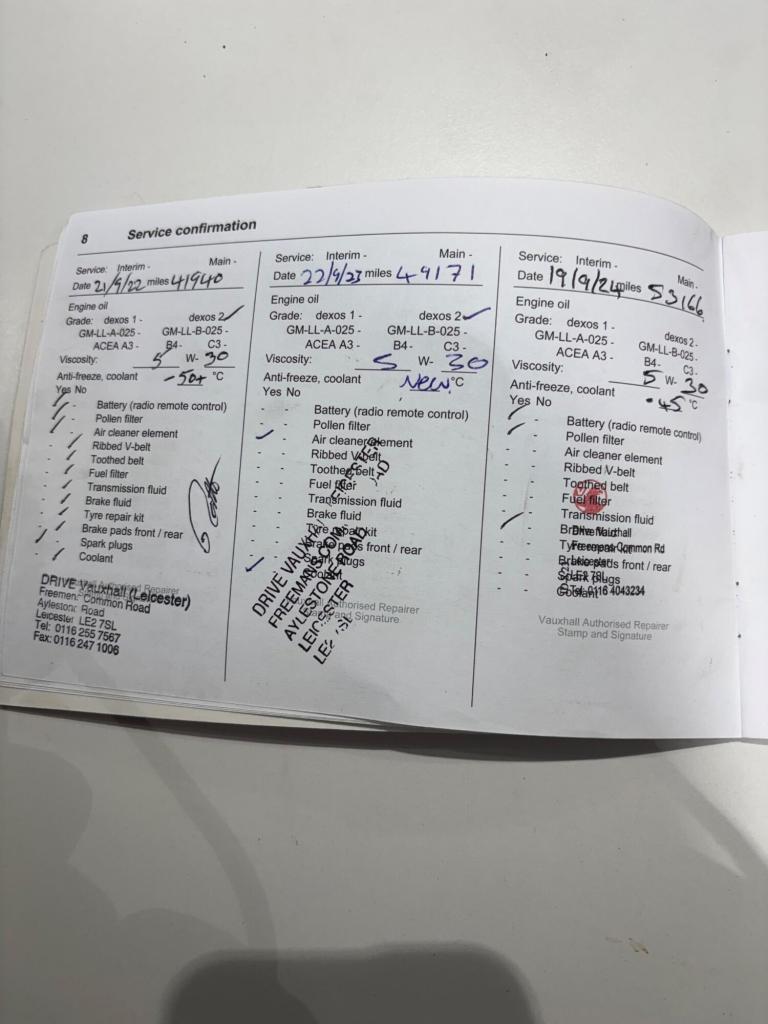 8 Service confirmation
Service: Interim - Main -
Date 21/9/22 miles 41940
Engine oil
Grade: dexos 1 - dexos 2
GM-LL-A-025 - GM-LL-B-025 -
ACEA A3 - B4- C3 -
Viscosity: 5 W- 30
Anti-freeze, coolant -50+ °C
Yes No
- Battery (radio remote control)
- Pollen filter
- Air cleaner element
- Ribbed V-belt
- Toothed belt
- Fuel filter
- Transmission fluid
- Brake fluid
- Tyre repair kit
- Brake pads front / rear
- Spark plugs
- Coolant
DRIVE Vauxhall (Leicester)
Freemens Common Road
Aylestone Road
Leicester LE2 7SL
Tel: 0116 255 7567
Fax: 0116 247 1006
Authorised Repairer
Service: Interim - Main -
Date 22/9/23 miles 49171
Engine oil
Grade: dexos 1 - dexos 2
GM-LL-A-025 - GM-LL-B-025 -
ACEA A3 - B4- C3 -
Viscosity: 5 W- 30
Anti-freeze, coolant New °C
Yes No
- - Battery (radio remote control)
- - Pollen filter
- Air cleaner element
- - Ribbed V-belt
- - Toothed belt
- - Fuel filter
- - Transmission fluid
- - Brake fluid
- - Tyre repair kit
- - Brake pads front / rear
- Spark plugs
- - Coolant
DRIVE VAUXHALL LEICESTER
FREEMANS COMMON ROAD
AYLESTONE ROAD
LEICESTER
LE2 7SL
Vauxhall Authorised Repairer
Stamp and Signature
Service: Interim - Main -
Date 19/9/24 miles 53166
Engine oil
Grade: dexos 1 - dexos 2 -
GM-LL-A-025 - GM-LL-B-025 -
ACEA A3 - B4- C3 -
Viscosity: 5 W- 30
Anti-freeze, coolant -45 °C
Yes No
- Battery (radio remote control)
- Pollen filter
- - Air cleaner element
- - Ribbed V-belt
- - Toothed belt
- - Fuel filter
- - Transmission fluid
- Brake fluid
- - Tyre repair kit
- - Brake pads front / rear
- - Spark plugs
- - Coolant
Drive Vauxhall
Freemans Common Rd
Leicester
LE2 7SL
Tel: 0116 4043234
Vauxhall Authorised Repairer
Stamp and Signature